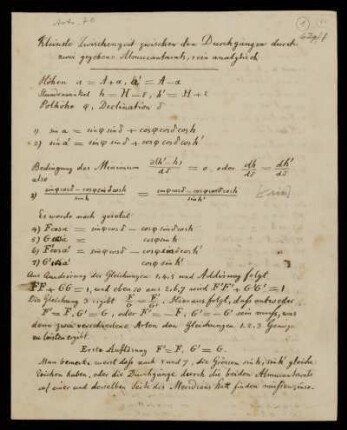 Kleinste Zwischenzeit zwischen den Durchgängen durch
zwei gegebene Almucantarats, rein analytisch
Höhen a = A+α, a' = A−α
Stundenwinkel h = H−τ, h' = H+τ
Polhöhe φ, Declination δ
1) sin a = sinφ sinδ + cosφ cosδ cosh
2) sin a' = sinφ sinδ + cosφ cosδ cosh'
Bedingung des Minimum d(h'−h)/dδ = 0, oder dh/dδ = dh'/dδ
also
3) sinφ cosδ − cosφ sinδ cosh / sinh = sinφ cosδ − cosφ sinδ cosh' / sinh'
Es werde nach gesetzt
4) F cosa = sinφ cosδ − cosφ sinδ cosh
5) G cosa = cosφ sinh
6) F' cosa' = sinφ cosδ − cosφ sinδ cosh'
7) G' cosa' = cosφ sinh'
Aus Quadrirung der Gleichungen 1, 4, 5 und Addirung folgt
FF + GG = 1, und eben so aus 2, 6, 7 wird F'F' + G'G' = 1
Die Gleichung 3 ergibt F/G = F'/G'. Hieraus folgt, dass entweder
F' = F, G' = G, oder F' = −F, G' = −G sein muss, aus
denen zwei verschiedene Arten den Gleichungen 1. 2. 3 Genüge
zu leisten ergibt
Erste Auflösung F' = F, G' = G.
Man bemerke zuerst dass nach 5 und 7, die Grössen sinh, sinh' gleiche
Zeichen haben, oder die Durchgänge durch die beiden Almucantarats
auf einer und derselben Seite des Meridians statt finden müssen